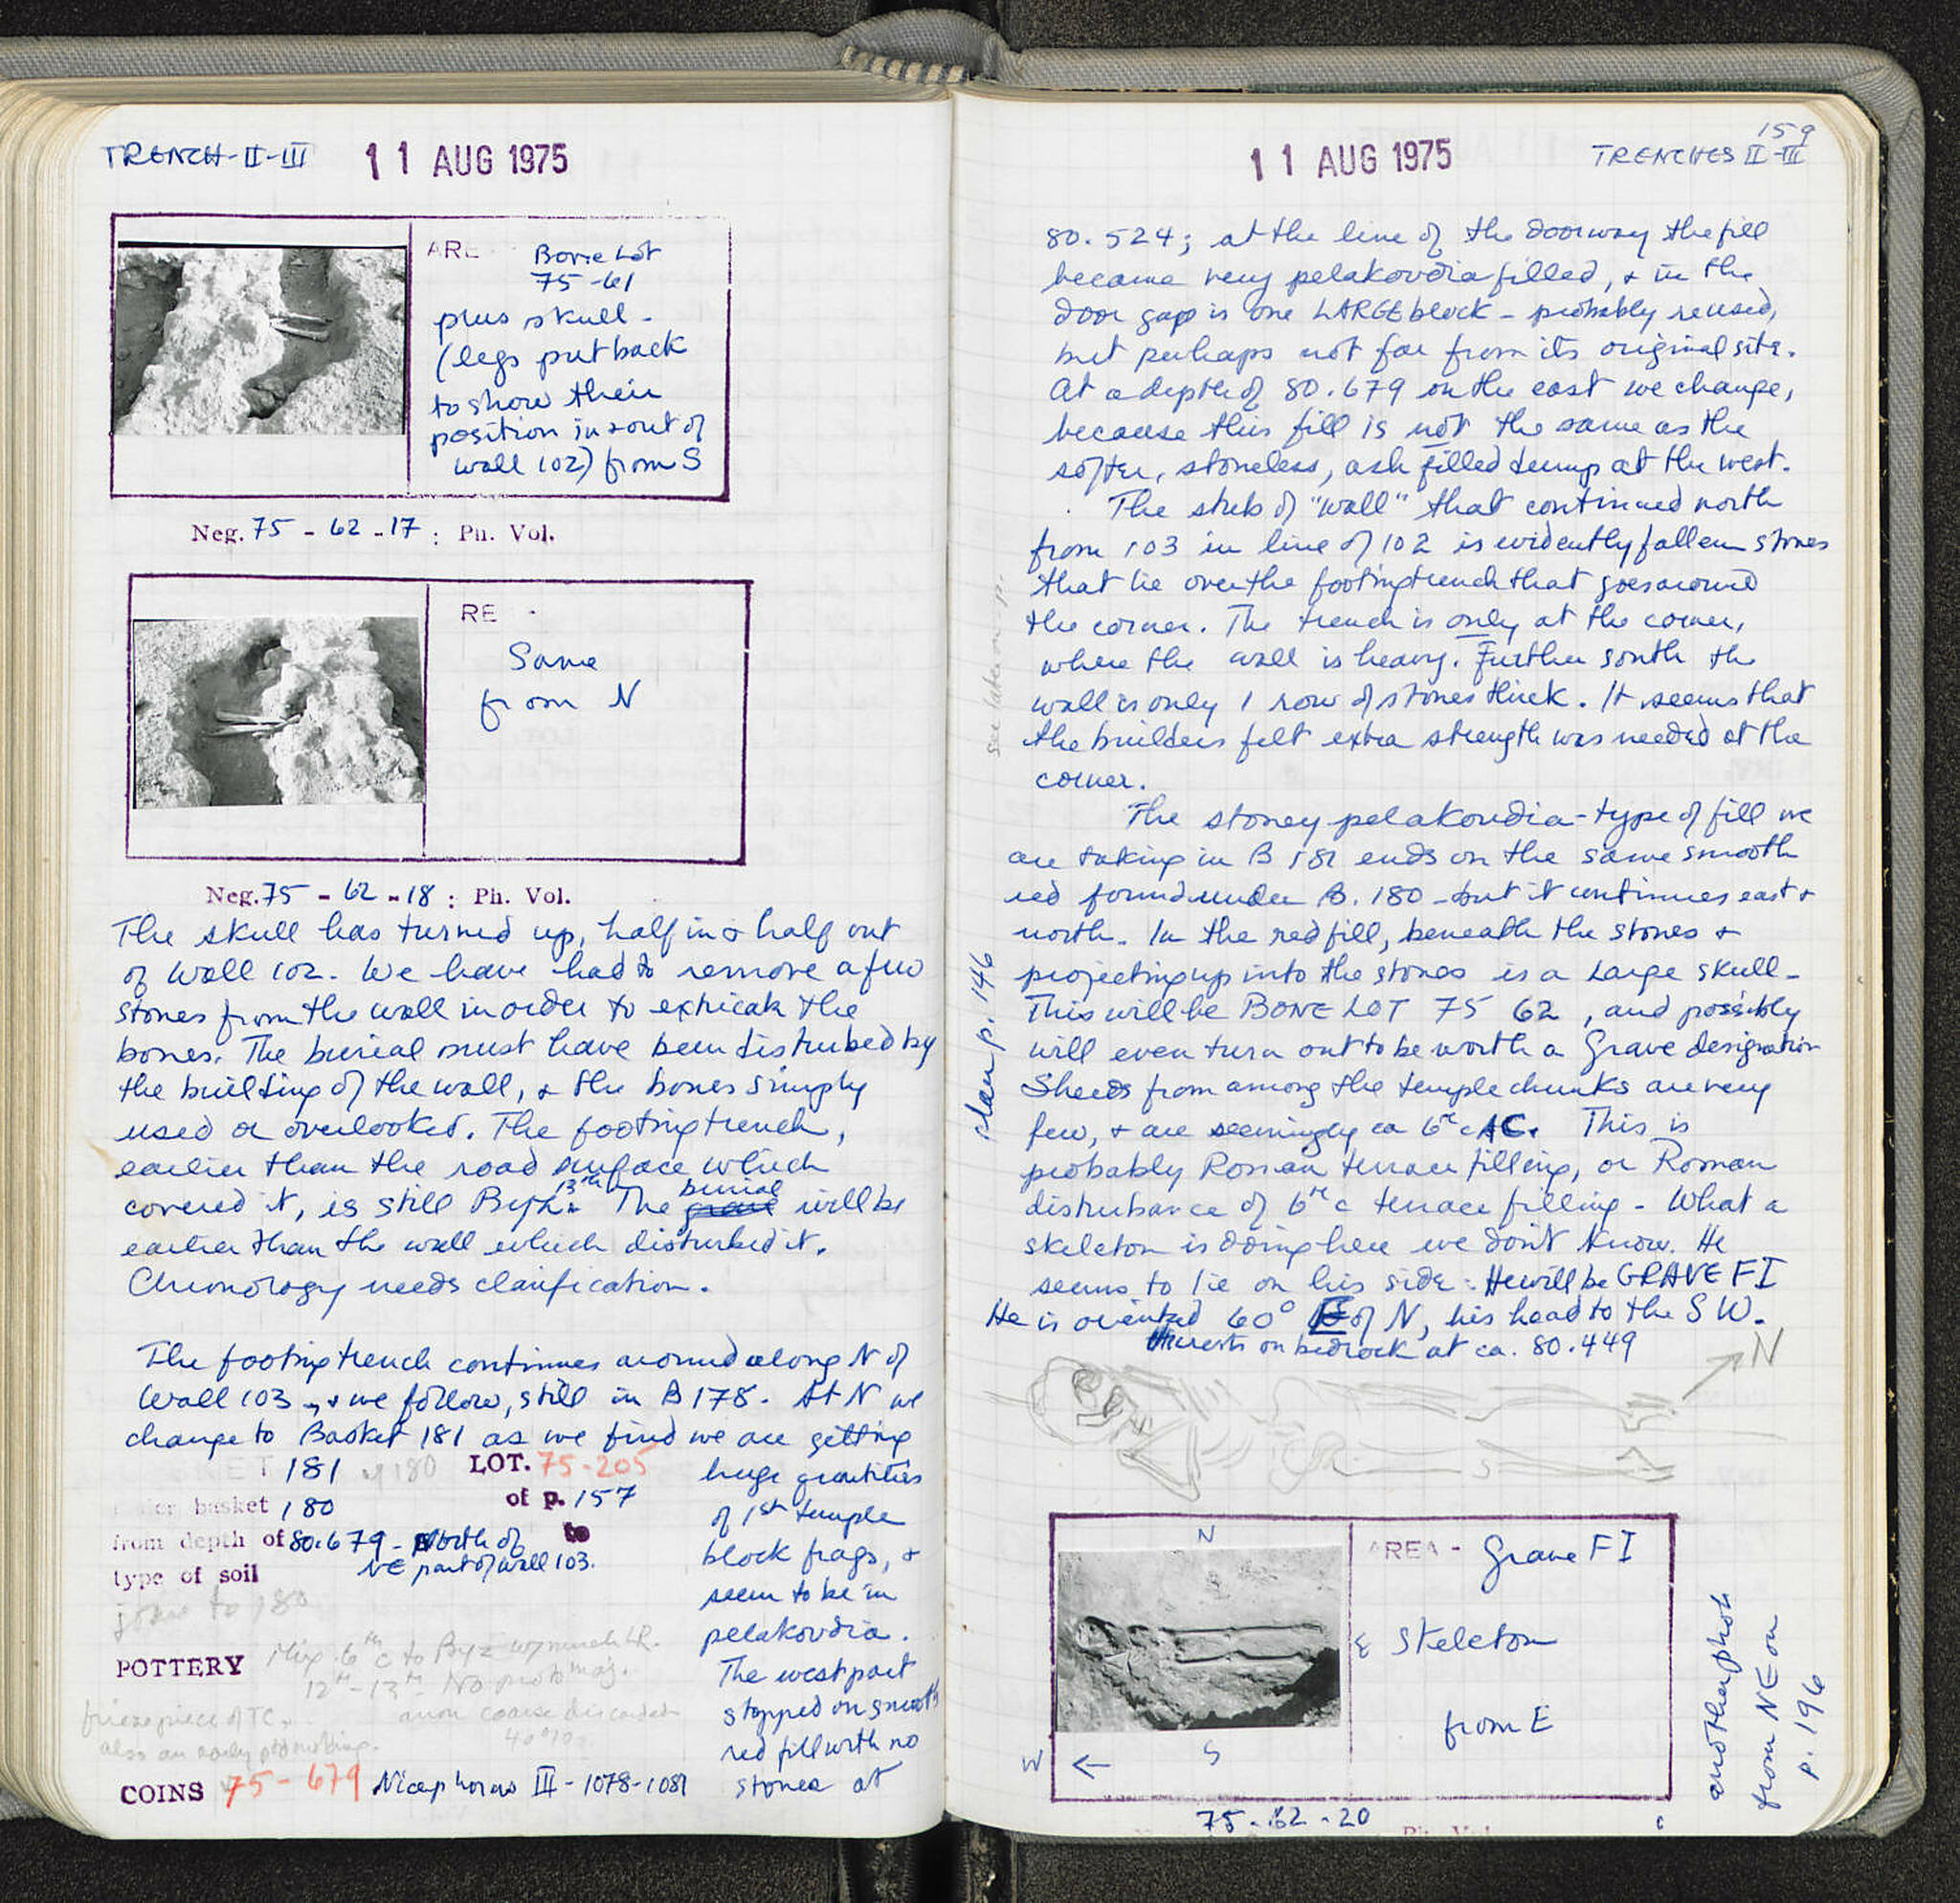 TRENCH-II-III 11 AUG 1975
ARE
Bone Lot
75-61
plus skull -
(legs put back
to show their
position in & out of
wall 102) from S
Neg. 75 - 62 - 17 : Ph. Vol.
RE
Same
from N
Neg. 75 - 62 - 18 : Ph. Vol.
The skull has turned up, half in & half out
of wall 102. We have had to remove a few
stones from the wall in order to extricate the
bones. The burial must have been disturbed by
the building of the wall, & the bones simply
used or overlooked. The footing trench,
earlier than the road surface which
covered it, is still Byz. 13th The burial will be
earlier than the wall which disturbed it.
Chronology needs clarification.
The footing trench continues around along N of
Wall 103, & we follow, still in B 178. At N we
change to Basket 181 as we find we are getting
huge quantities
of 1st temple
block frags, &
seem to be in
pelakoudia.
The west part
stopped on smooth
red fill with no
stones at
181 of 180 LOT. 75-205
basket 180 of p. 157
from depth of 80.679 - North of to
NE part of wall 103.
type of soil
to 180
POTTERY Mix 6th c to Byz w/ much LR.
12th-13th No proto maj.
frieze piece of TC,
coarse discarded
COINS 75-679 Nicephorus III - 1078-1081
159
11 AUG 1975 TRENCHES II-III
80.524; at the line of the doorway the fill
became very pelakoudia filled, & in the
door gap is one LARGE block - probably reused,
but perhaps not far from its original site.
At a depth of 80.679 on the east we change,
because this fill is not the same as the
softer, stoneless, ash filled dump at the west.
The stub of "wall" that continued north
from 103 in line of 102 is evidently fallen stones
that lie over the footing trench that goes around
the corner. The trench is only at the corner,
where the wall is heavy. Further south the
wall is only 1 row of stones thick. It seems that
the builders felt extra strength was needed at the
corner.
see later on p.
The stoney pelakoudia-type of fill we
are taking in B 181 ends on the same smooth
red found under B. 180 - but it continues east &
north. In the red fill, beneath the stones &
projecting up into the stones is a large skull -
This will be BONE LOT 75 62, and possibly
will even turn out to be worth a Grave designation
Sherds from among the temple chunks are very
few, & are seemingly ca 6th c AC. This is
probably Roman terrace filling, or Roman
disturbance of 6th c terrace filling - What a
skeleton is doing here we don't know. He
seems to lie on his side. He will be GRAVE FI
He is oriented 60° E of N, his head to the SW.
rests on bedrock at ca. 80.449
plan p. 146
N
N
AREA - Grave FI
& Skeleton
from E
W ← S
75-62-20
another photo
from NE on
p. 196